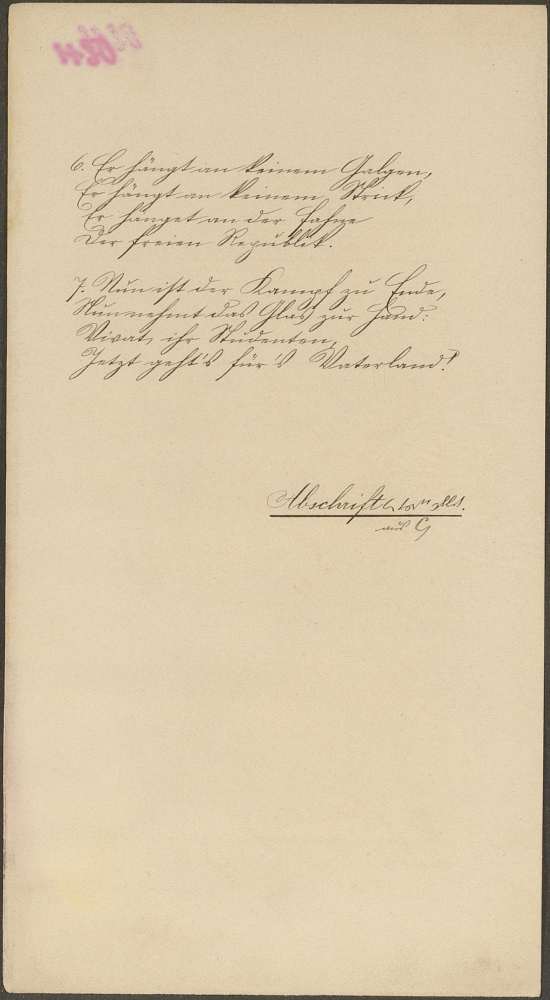 6. Er hängt an keinem Galgen,
Er hängt an keinem Strick,
Er hänget an der Fahne
Der freien Republik.
7. Nun ist der Kampf zu Ende,
Nun nehmt das Glas zur Hand:
Vivat, ihr Studenten,
Jetzt geht's für's Vaterland!
Abschrift
aus G